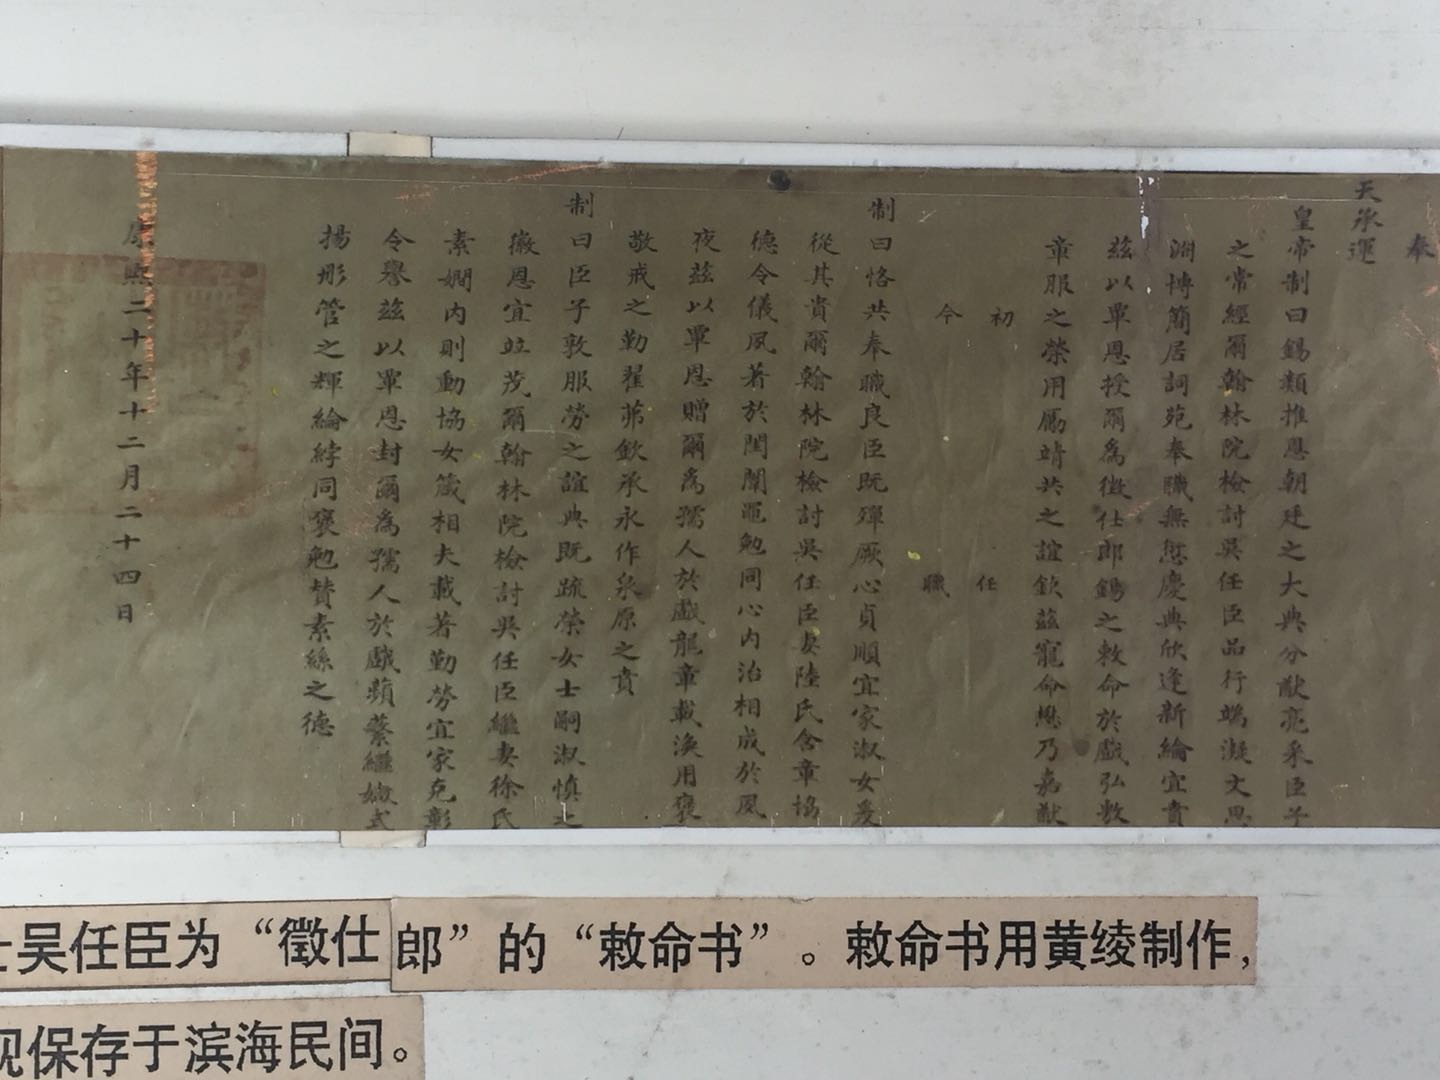 奉
天承運
皇帝制曰錫類推恩朝廷之大典分猷亮采臣子
之常經爾翰林院檢討吳任臣品行端凝文思
淵博簡居詞苑奉職無愆慶典欣逢新綸宜賁
茲以覃恩授爾為徵仕郎錫之敕命於戲弘敷
章服之榮用勵靖共之誼欽茲寵命懋乃嘉猷
初任
今職
制曰恪共奉職良臣既殫厥心貞順宜家淑女爰
從其貴爾翰林院檢討吳任臣妻陸氏含章協
德令儀夙著於閨闈黽勉同心內治相成於夙
夜茲以覃恩贈爾為孺人於戲龍章載渙用褒
敬戒之勤翟茀欽承永作泉原之賁
制曰臣子敦服勞之誼典既疏榮女士嗣淑慎之
徽恩宜竝茂爾翰林院檢討吳任臣繼妻徐氏
素嫺內則動協女箴相夫載著勤勞宜家克彰
令譽茲以覃恩封爾為孺人於戲蘋蘩繼媺式
揚彤管之輝綸綍同褒勉贊素絲之德
康熙二十年十二月二十四日
吴任臣为“徵仕郎”的“敕命书”。敕命书用黄绫制作,
现保存于滨海民间。